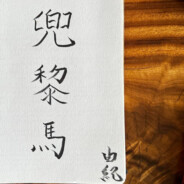 兜黎馬
由紀